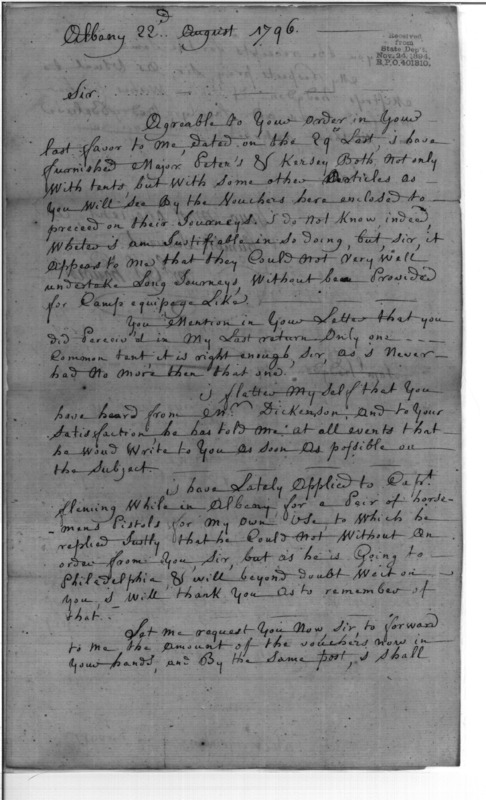 Albany 22d. August 1796.
Received
from
State Dep't.
Nov. 24, 1894,
R.P.O. 401810.
Sir.
Agreable to Your order in Your
last favor to me, dated on the 29th Last, i have
furnished Major Peter's & Kersey Both, Not only
With tents but With Some other Articles as
You Will See By the Vouchers here enclosed to
preceed on their Journeys. i do not Know, indeed
Wheter i am Justifiable in So doing, but, Sir, it
appears to me that they Could Not Very Well
undertake Long Journeys, Without bee Provided
for Camp equipage Like
You Mention in Your Letter that you
did Perceiv'd in My Last return Only one
Common tent, it is right enough, Sir, as i Never
had No more then that one.
i flatter My Self that You
have heard from Mr. Dickenson, and to Your
Satisfaction he has told me at all events that
he Woud Write to You as Soon as possible on
the Subject.
i have Lately Applied to Capt.
fleming While in Albany for a Peir of horse-
mens Pistols for My own Use, to Which he
replied Justly that he Could Not Without an
order from You, Sir, but as he is Going to
Philadelphia & will beyond doubt Weit on
You, i Will thank You as to remember of
that.
Let me request You Now Sir to forward
to me the Amount of the vouchers now in
Your hands, and By the Same post, i Shall